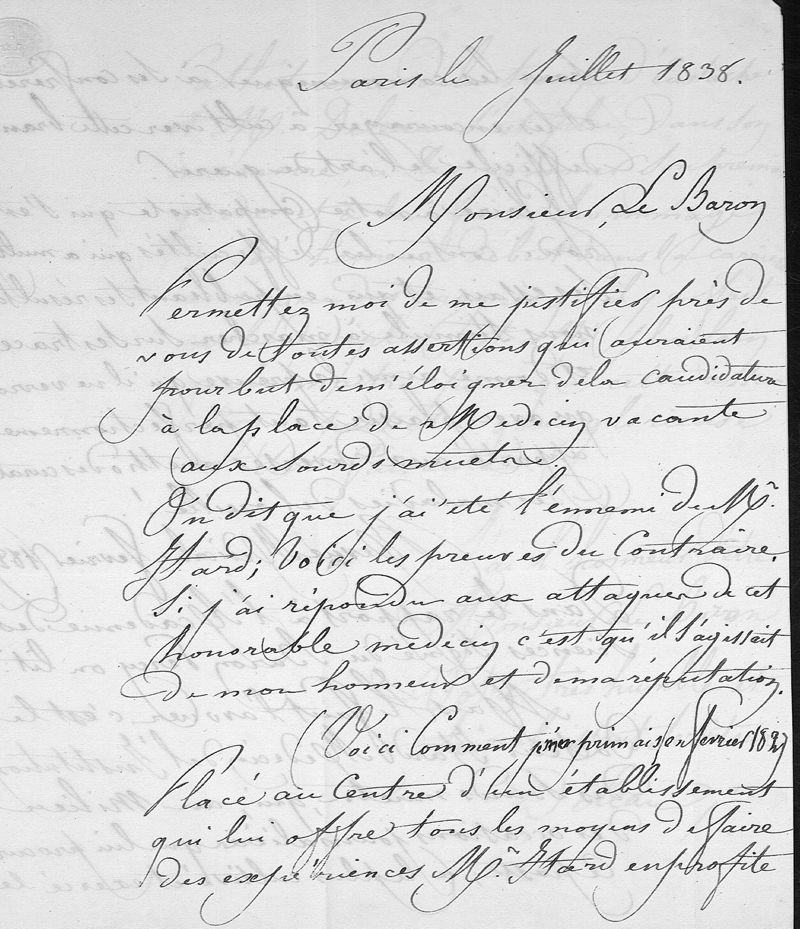 Paris le Juillet 1838.
Monsieur, Le Baron
Permettez moi de me justifier près de
vous de toutes assertions qui auraient
pour but de m'éloigner de la candidature
à la place de Medecin vacante
aux Sourds muets.
On dit que j'ai été l'ennemi de Mr.
Itard; Voici les preuves du Contraire.
Si j'ai répondu aux attaques de cet
honorable medecin c'est qu'il s'agissait
de mon honneur et de ma réputation.
(Voici Comment je m'exprimais en fevrier
Placé au Centre d'un établissement
qui lui offre tous les moyens de faire
des expériences Mr. Itard en profite